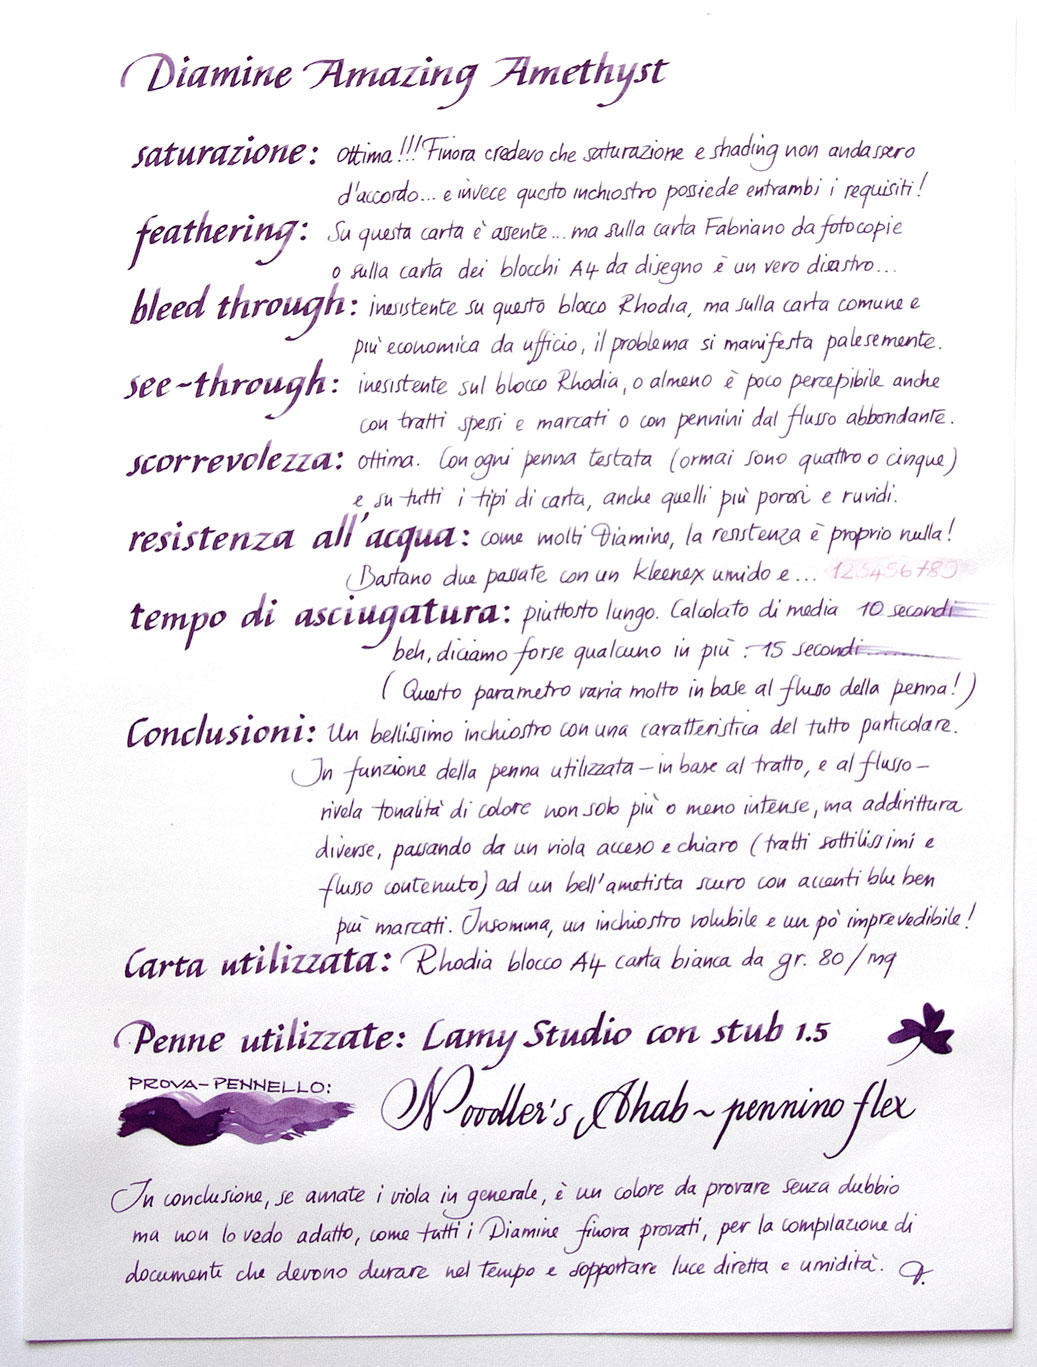 Diamine Amazing Amethyst
saturazione: Ottima!!! Finora credevo che saturazione e shading non andassero
d'accordo... e invece questo inchiostro possiede entrambi i requisiti!
feathering: Su questa carta è assente... ma sulla carta Fabriano da fotocopie
o sulla carta dei blocchi A4 da disegno è un vero disastro...
bleed through: inesistente su questo blocco Rhodia, ma sulla carta comune e
più economica da ufficio, il problema si manifesta palesemente.
see-through: inesistente sul blocco Rhodia, o almeno è poco percepibile anche
con tratti spessi e marcati o con pennini dal flusso abbondante.
scorrevolezza: ottima. Con ogni penna testata (ormai sono quattro o cinque)
e su tutti i tipi di carta, anche quelli più porosi e ruvidi.
resistenza all'acqua: come molti Diamine, la resistenza è proprio nulla!
Bastano due passate con un Kleenex umido e... 123456789
tempo di asciugatura: piuttosto lungo. Calcolato di media 10 secondi
beh, diciamo forse qualcuno in più: 15 secondi..........
(Questo parametro varia molto in base al flusso della penna!)
Conclusioni: Un bellissimo inchiostro con una caratteristica del tutto particolare.
In funzione della penna utilizzata – in base al tratto, e al flusso –
rivela tonalità di colore non solo più o meno intense, ma addirittura
diverse, passando da un viola acceso e chiaro (tratti sottilissimi e
flusso contenuto) ad un bell'ametista scuro con accenti blu ben
più marcati. Insomma, un inchiostro volubile e un pò imprevedibile!
Carta utilizzata: Rhodia blocco A4 carta bianca da gr. 80/mq
Penne utilizzate: Lamy Studio con stub 1.5
PROVA-PENNELLO:
Noodler's Ahab ~ pennino flex
In conclusione, se amate i viola in generale, è un colore da provare senza dubbio
ma non lo vedo adatto, come tutti i Diamine finora provati, per la compilazione di
documenti che devono durare nel tempo e sopportare luce diretta e umidità.